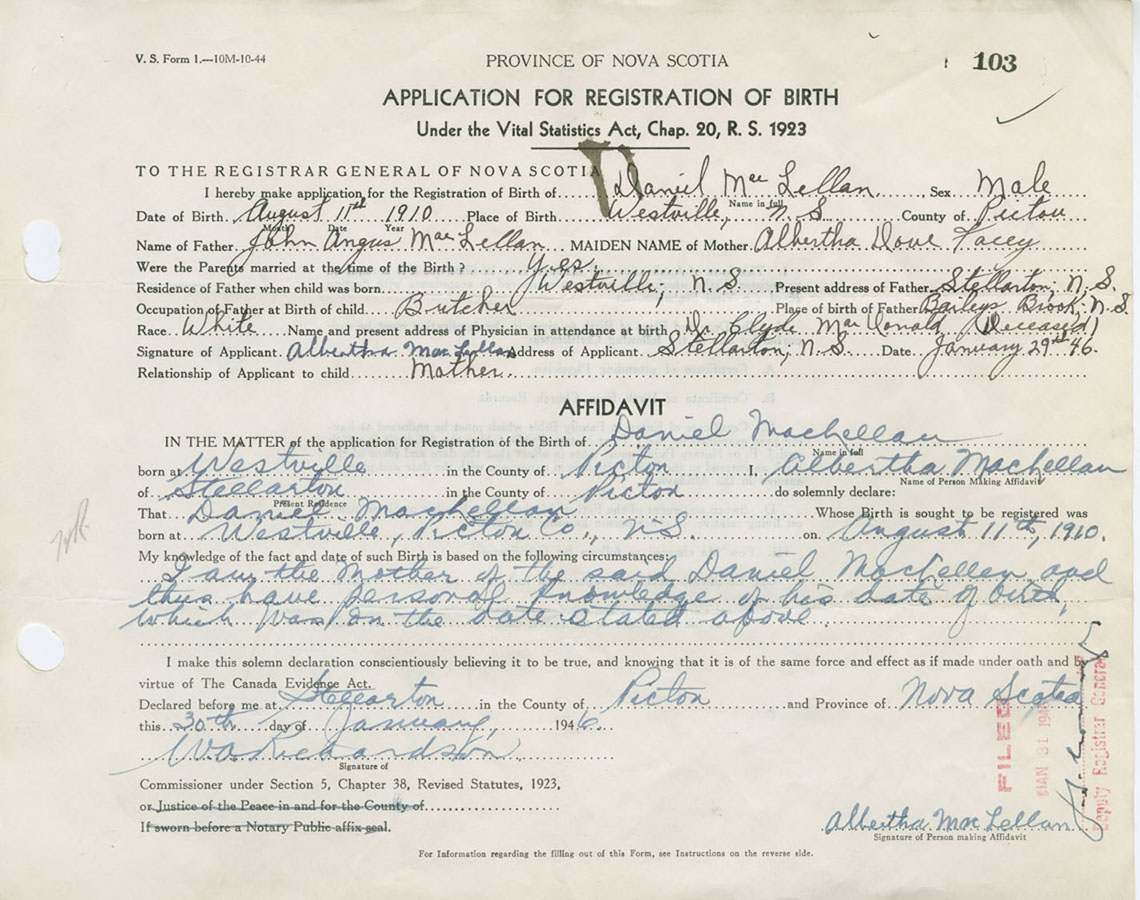 V. S. Form 1.—10M-10-44
PROVINCE OF NOVA SCOTIA
103
APPLICATION FOR REGISTRATION OF BIRTH
Under the Vital Statistics Act, Chap. 20, R. S. 1923
TO THE REGISTRAR GENERAL OF NOVA SCOTIA
I hereby make application for the Registration of Birth of Daniel MacLellan Sex Male
Name in full
Date of Birth August 11th 1910 Place of Birth Westville, N.S. County of Pictou
Month Date Year
Name of Father John Angus MacLellan MAIDEN NAME of Mother Albertha Dove Lacey
Were the Parents married at the time of the Birth? Yes
Residence of Father when child was born Westville, N.S. Present address of Father Stellarton, N.S.
Occupation of Father at Birth of child Butcher Place of birth of Father Baileys Brook, N.S.
Race White Name and present address of Physician in attendance at birth Dr Clyde MacDonald (Deceased)
Signature of Applicant Albertha MacLellan Address of Applicant Stellarton, N.S. Date January 29th 46.
Relationship of Applicant to child Mother.
AFFIDAVIT
IN THE MATTER of the application for Registration of the Birth of Daniel MacLellan
Name in full
born at Westville in the County of Pictou I, Albertha MacLellan
Name of Person Making Affidavit
of Stellarton in the County of Pictou do solemnly declare:
Present Residence
That Daniel MacLellan Whose Birth is sought to be registered was
born at Westville, Pictou Co., N.S. on August 11th, 1910.
My knowledge of the fact and date of such Birth is based on the following circumstances:
I am the Mother of the said Daniel MacLellan and
thus have personal knowledge of his date of birth,
which was on the date stated above.
I make this solemn declaration conscientiously believing it to be true, and knowing that it is of the same force and effect as if made under oath and by
virtue of The Canada Evidence Act.
Declared before me at Stellarton in the County of Pictou and Province of Nova Scotia
this 30th day of January, 1946.
W A Richardson
Signature of
Commissioner under Section 5, Chapter 38, Revised Statutes, 1923,
or Justice of the Peace in and for the County of
If sworn before a Notary Public affix seal.
FILED
JAN 31 194
Deputy Registrar General
Albertha MacLellan
Signature of Person making Affidavit
For Information regarding the filling out of this Form, see Instructions on the reverse side.